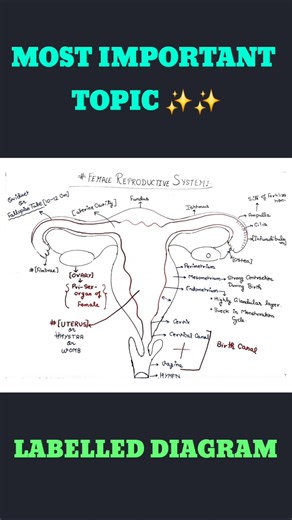 MOST IMPORTANT
TOPIC ✨✨
# FEMALE REPRODUCTIVE SYSTEM:
Oviduct
or
Fallopian Tube [10-12 cm]
[Uterine Cavity]
Fundus
Isthmus
Site of Fertilis
Ampulla
Cilia
[Infundibulu
#[Fimbrae]
[OVARY]
Pri-Sex-
organ of
Female
[Ostea]
Perimetrium
Myometrium → Strong Contraction
During Birth
Endometrium
→ Highly Glandular layer.
Menstruation
Cycle.
#[UTERUS]
or
HYSTRA
or
WOMB
Cervix
Cervical Canal
Birth Canal
Vagina
HYMEN
LABELLED DIAGRAM